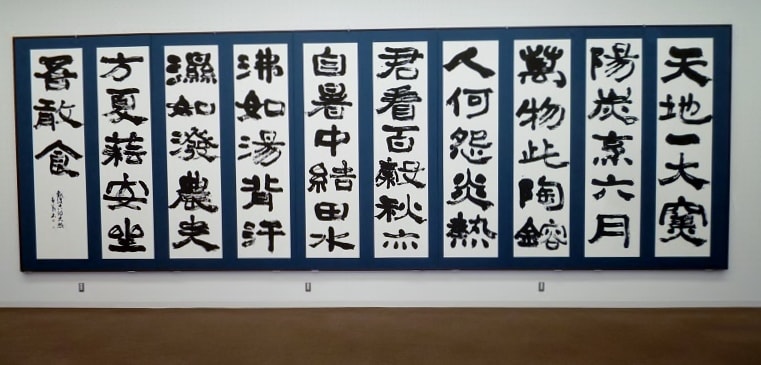 天地一大窯
陽炭烹六月
萬物此陶鎔
人何怨炎熱
君看百穀秋亦
自暑中結田水
沸如湯背汗
濕如潑農夫
方夏耘安坐
吾敢食